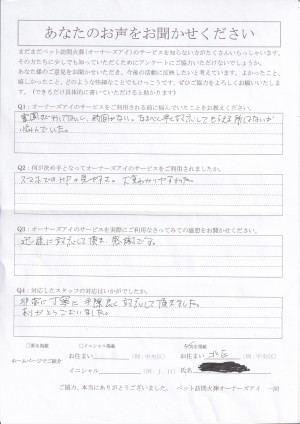 あなたのお声をお聞かせください
まだまだペット訪問火葬(オーナーズアイ)のサービスを知らない方がたくさんいらっしゃいます。
その方たちに少しでも知っていただくためにアンケートにご協力いただけないでしょうか。
あなた様のご意見をお聞かせいただき、今後の活動に反映したいと考えています。よかったこと、
嬉しかったこと、どのような性格のことでもけっこうです。ぜひご協力をよろしくお願いいたします。
(できるだけ具体的に書いていただけると助かります)
Q1:オーナーズアイのサービスをご利用される前に悩んでいたことをお教えください。
悩んでいた。
Q2:何が決め手となってオーナーズアイのサービスをご利用されましたか。
スマホでのHPの見やすさ。
Q3:オーナーズアイのサービスを実際にご利用なさってみての感想をお聞かせください。
迅速に対応して頂き、感謝です。
Q4:対応したスタッフの対応はいかがでしたか。
非常に丁寧に手際良く対応して頂きました。
ありがとうございました。
ホームページでご紹介
□イニシャル掲載
お住まい
(例:中央区)
イニシャル
お住まい
(例:中央区)
氏名
ご協力、本当にありがとうございました。 ペット訪問火葬オーナーズアイ 一同